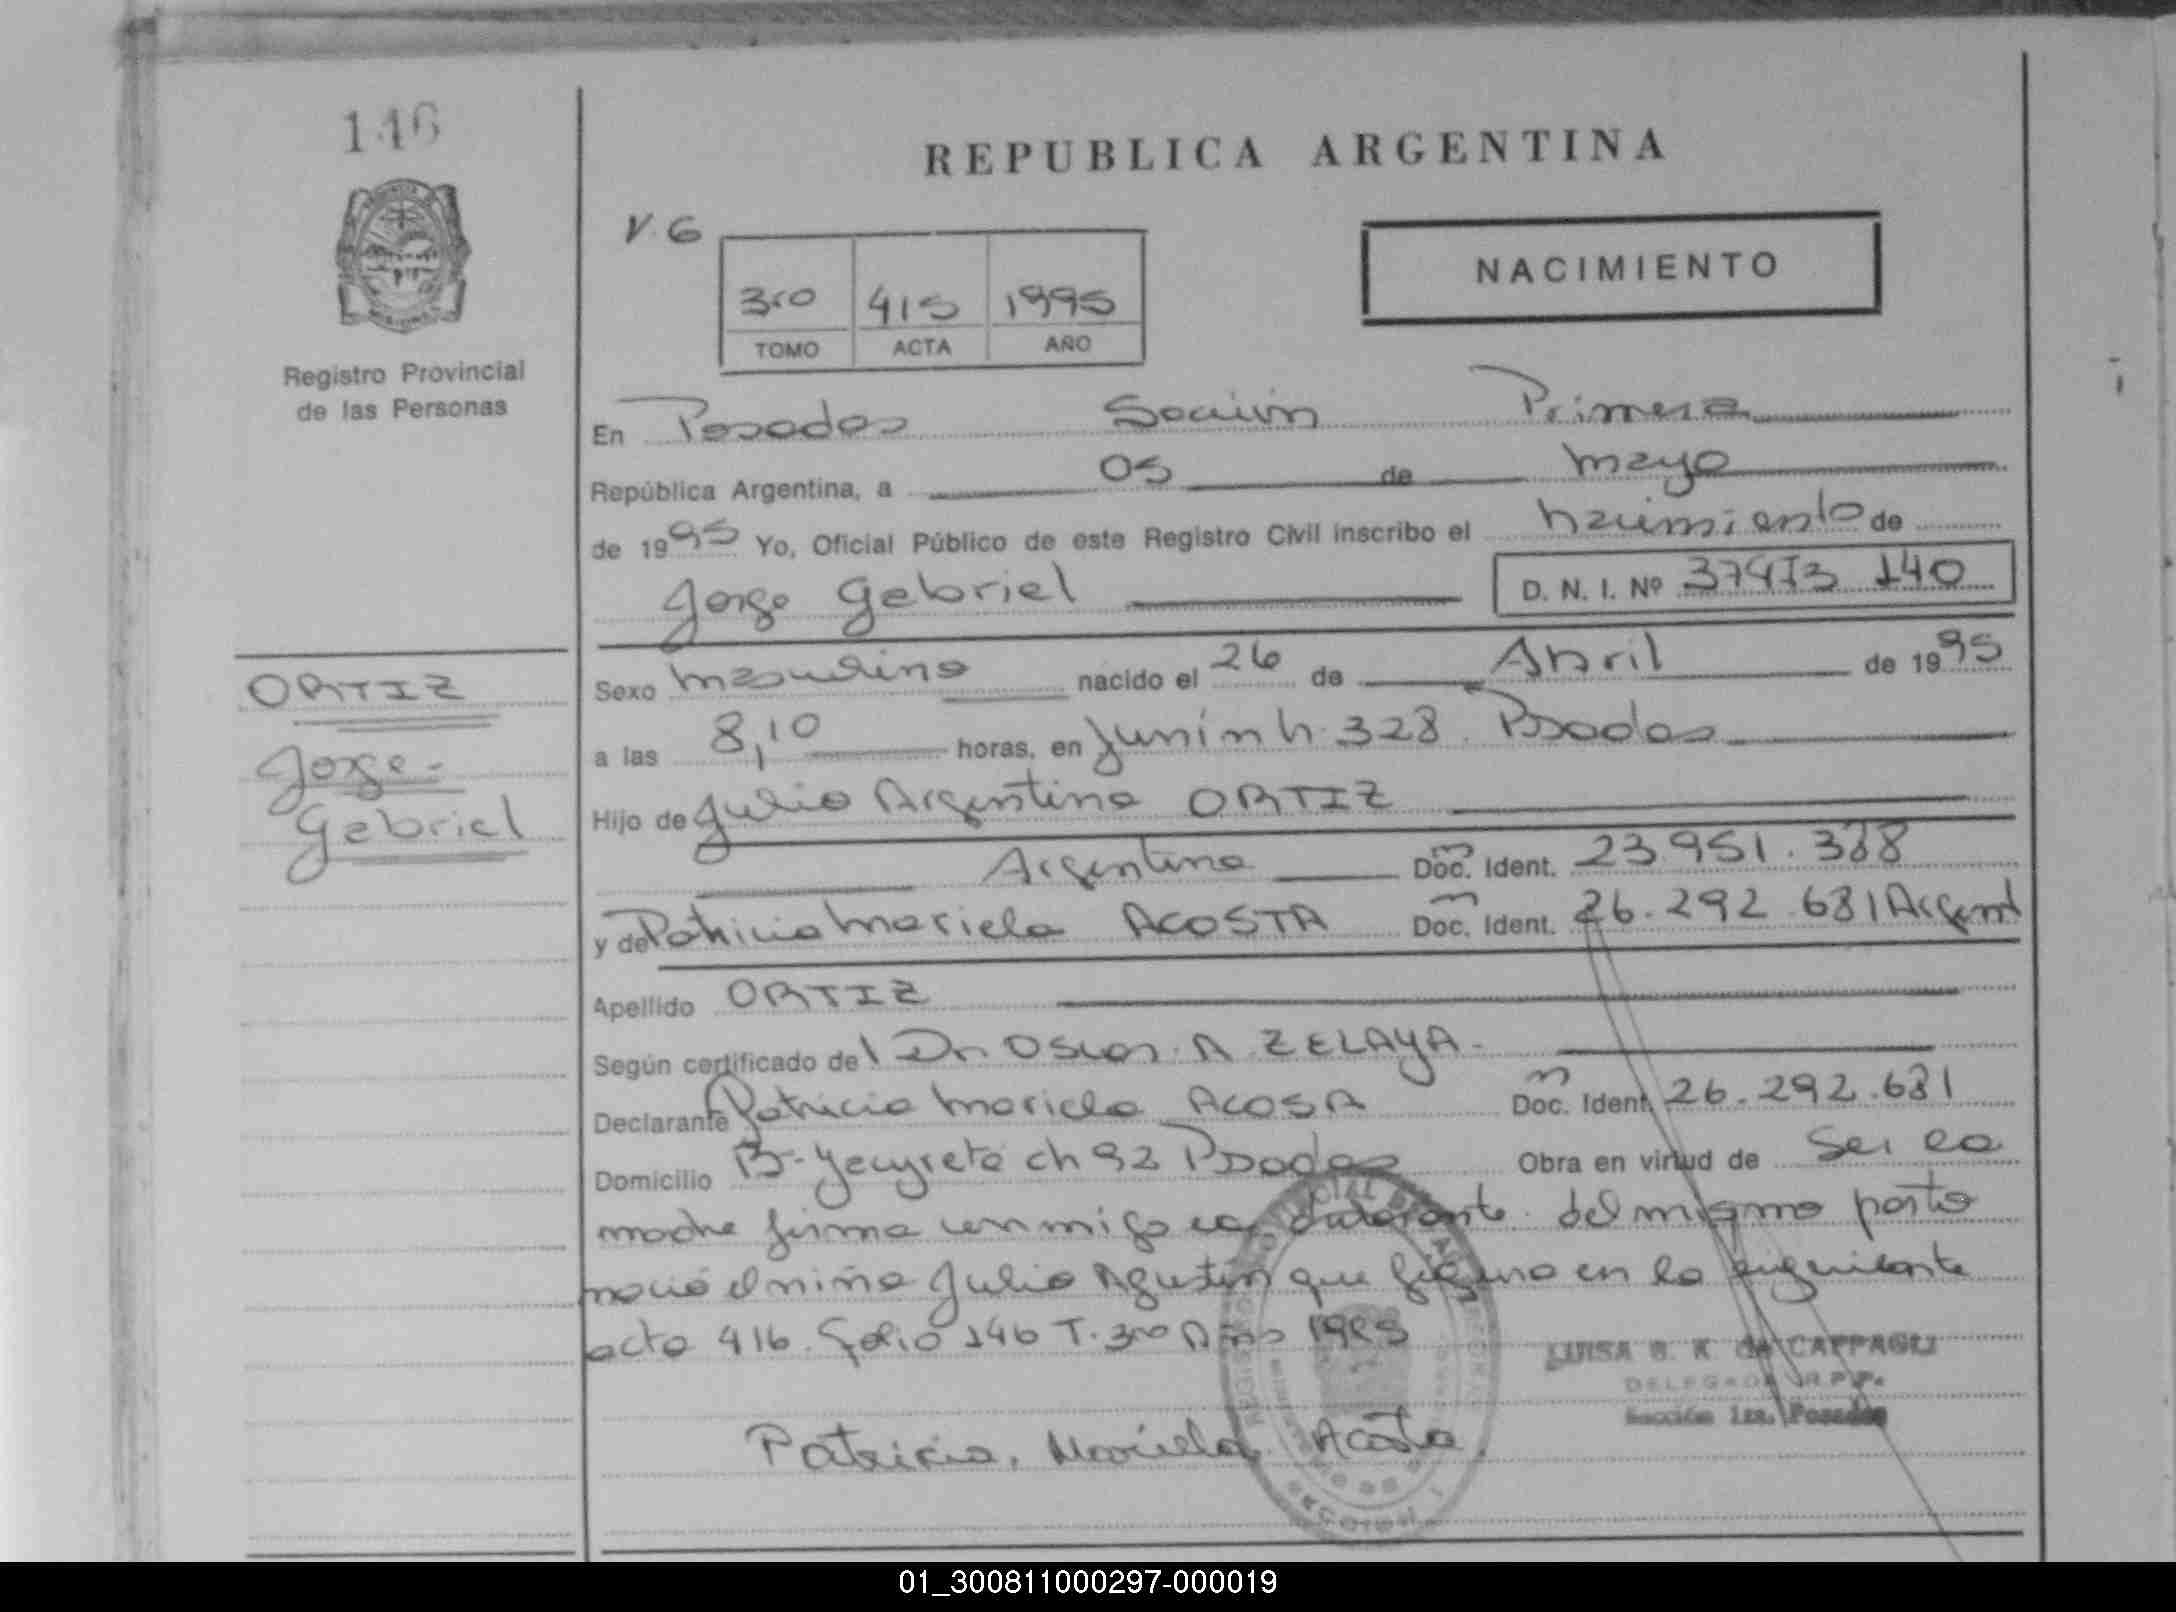 146
REPUBLICA ARGENTINA
V. 6
NACIMIENTO
3ro 415 1995
TOMO ACTA AÑO
Registro Provincial
de las Personas
En Posadas Sección Primera
República Argentina, a 05 de mayo
de 1995 Yo, Oficial Público de este Registro Civil inscribo el nacimiento de
Jorge Gabriel D. N. I. Nº 37473 140
ORTIZ
Jorge-
Gabriel
Sexo masculino nacido el 26 de Abril de 1995
a las 8,10 horas, en Junín n. 328. Posadas
Hijo de Julio Argentino ORTIZ
Argentino Doc. Ident. 23.951.388
y de Patricia Mariela ACOSTA Doc. Ident. 26.292.681 Argent
Apellido ORTIZ
Según certificado del Dr. Oscar. A. ZELAYA.
Declarante Patricia Mariela ACOSA Doc. Ident. 26.292.681
Domicilio B- Yacyretá ch 92 Posadas Obra en virtud de Ser la
madre firma conmigo la declarante. del mismo parto
nació el niño Julio Agustín que figura en la siguiente
acta 416. folio 146 T. 3ro Año 1995
LUISA B. K. de CAPPAGLI
DELEGADA R.P.P.
Sección 1ra. Posadas
Patricia, Mariela, Acosta.
01_300811000297-000019